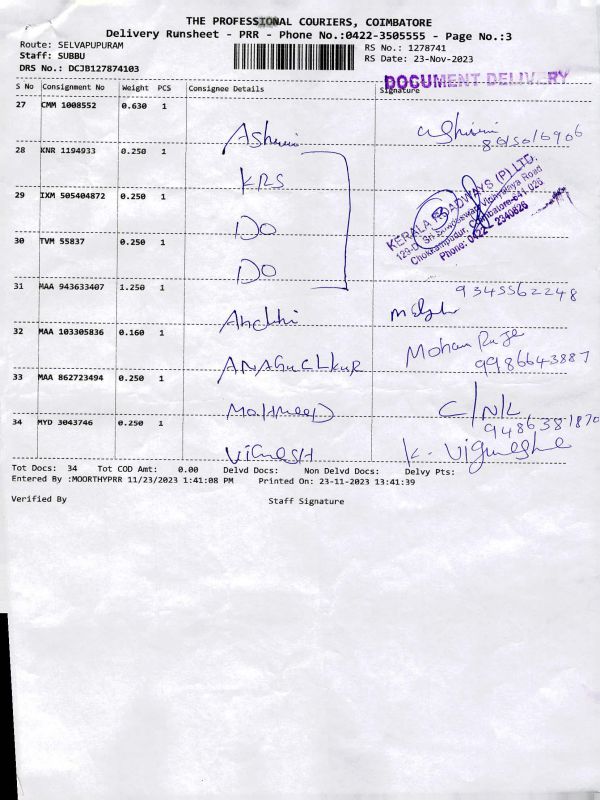 THE PROFESSIONAL COURIERS, COIMBATORE
Delivery Runsheet - PRR - Phone No.:0422-3505555 - Page No.:3
Route: SELVAPUPURAM
RS No.: 1278741
Staff: SUBBU
RS Date: 23-Nov-2023
DRS No.: DCJB127874103
DOCUMENT DELIVERY
S No Consignment No Weight PCS Consignee Details Signature
27 CMM 1008552 0.630 1
Ashwini
28 KNR 1194933 0.250 1
KRS
29 IXM 505404872 0.250 1
DO
KERALA ROADWAYS (P) LTD.
Chokkampudur, Coimbatore-641 026
Phone: 0422 2340826
30 TVM 55837 0.250 1
DO
31 MAA 943633407 1.250 1
9345562248
32 MAA 103305836 0.160 1
Mohan Raje
9986643887
33 MAA 862723494 0.250 1
MOHMEED
C/N/L
9486381870
34 MYD 3043746 0.250 1
VIGNESH
K. Vignesh
Tot Docs: 34 Tot COD Amt: 0.00 Delvd Docs: Non Delvd Docs: Delvy Pts:
Entered By :MOORTHYPRR 11/23/2023 1:41:08 PM Printed On: 23-11-2023 13:41:39
Verified By Staff Signature